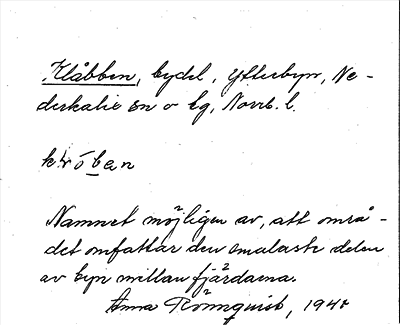 Klåbben, bydel, Ytterbyn, Ne-
derkalix sn o tg, Norrb. l.
klǒban
Namnet möjligen av, att områ-
det omfattar den smalaste delen
av byn mellan fjärdarna.
Anna Rönnquist, 1940